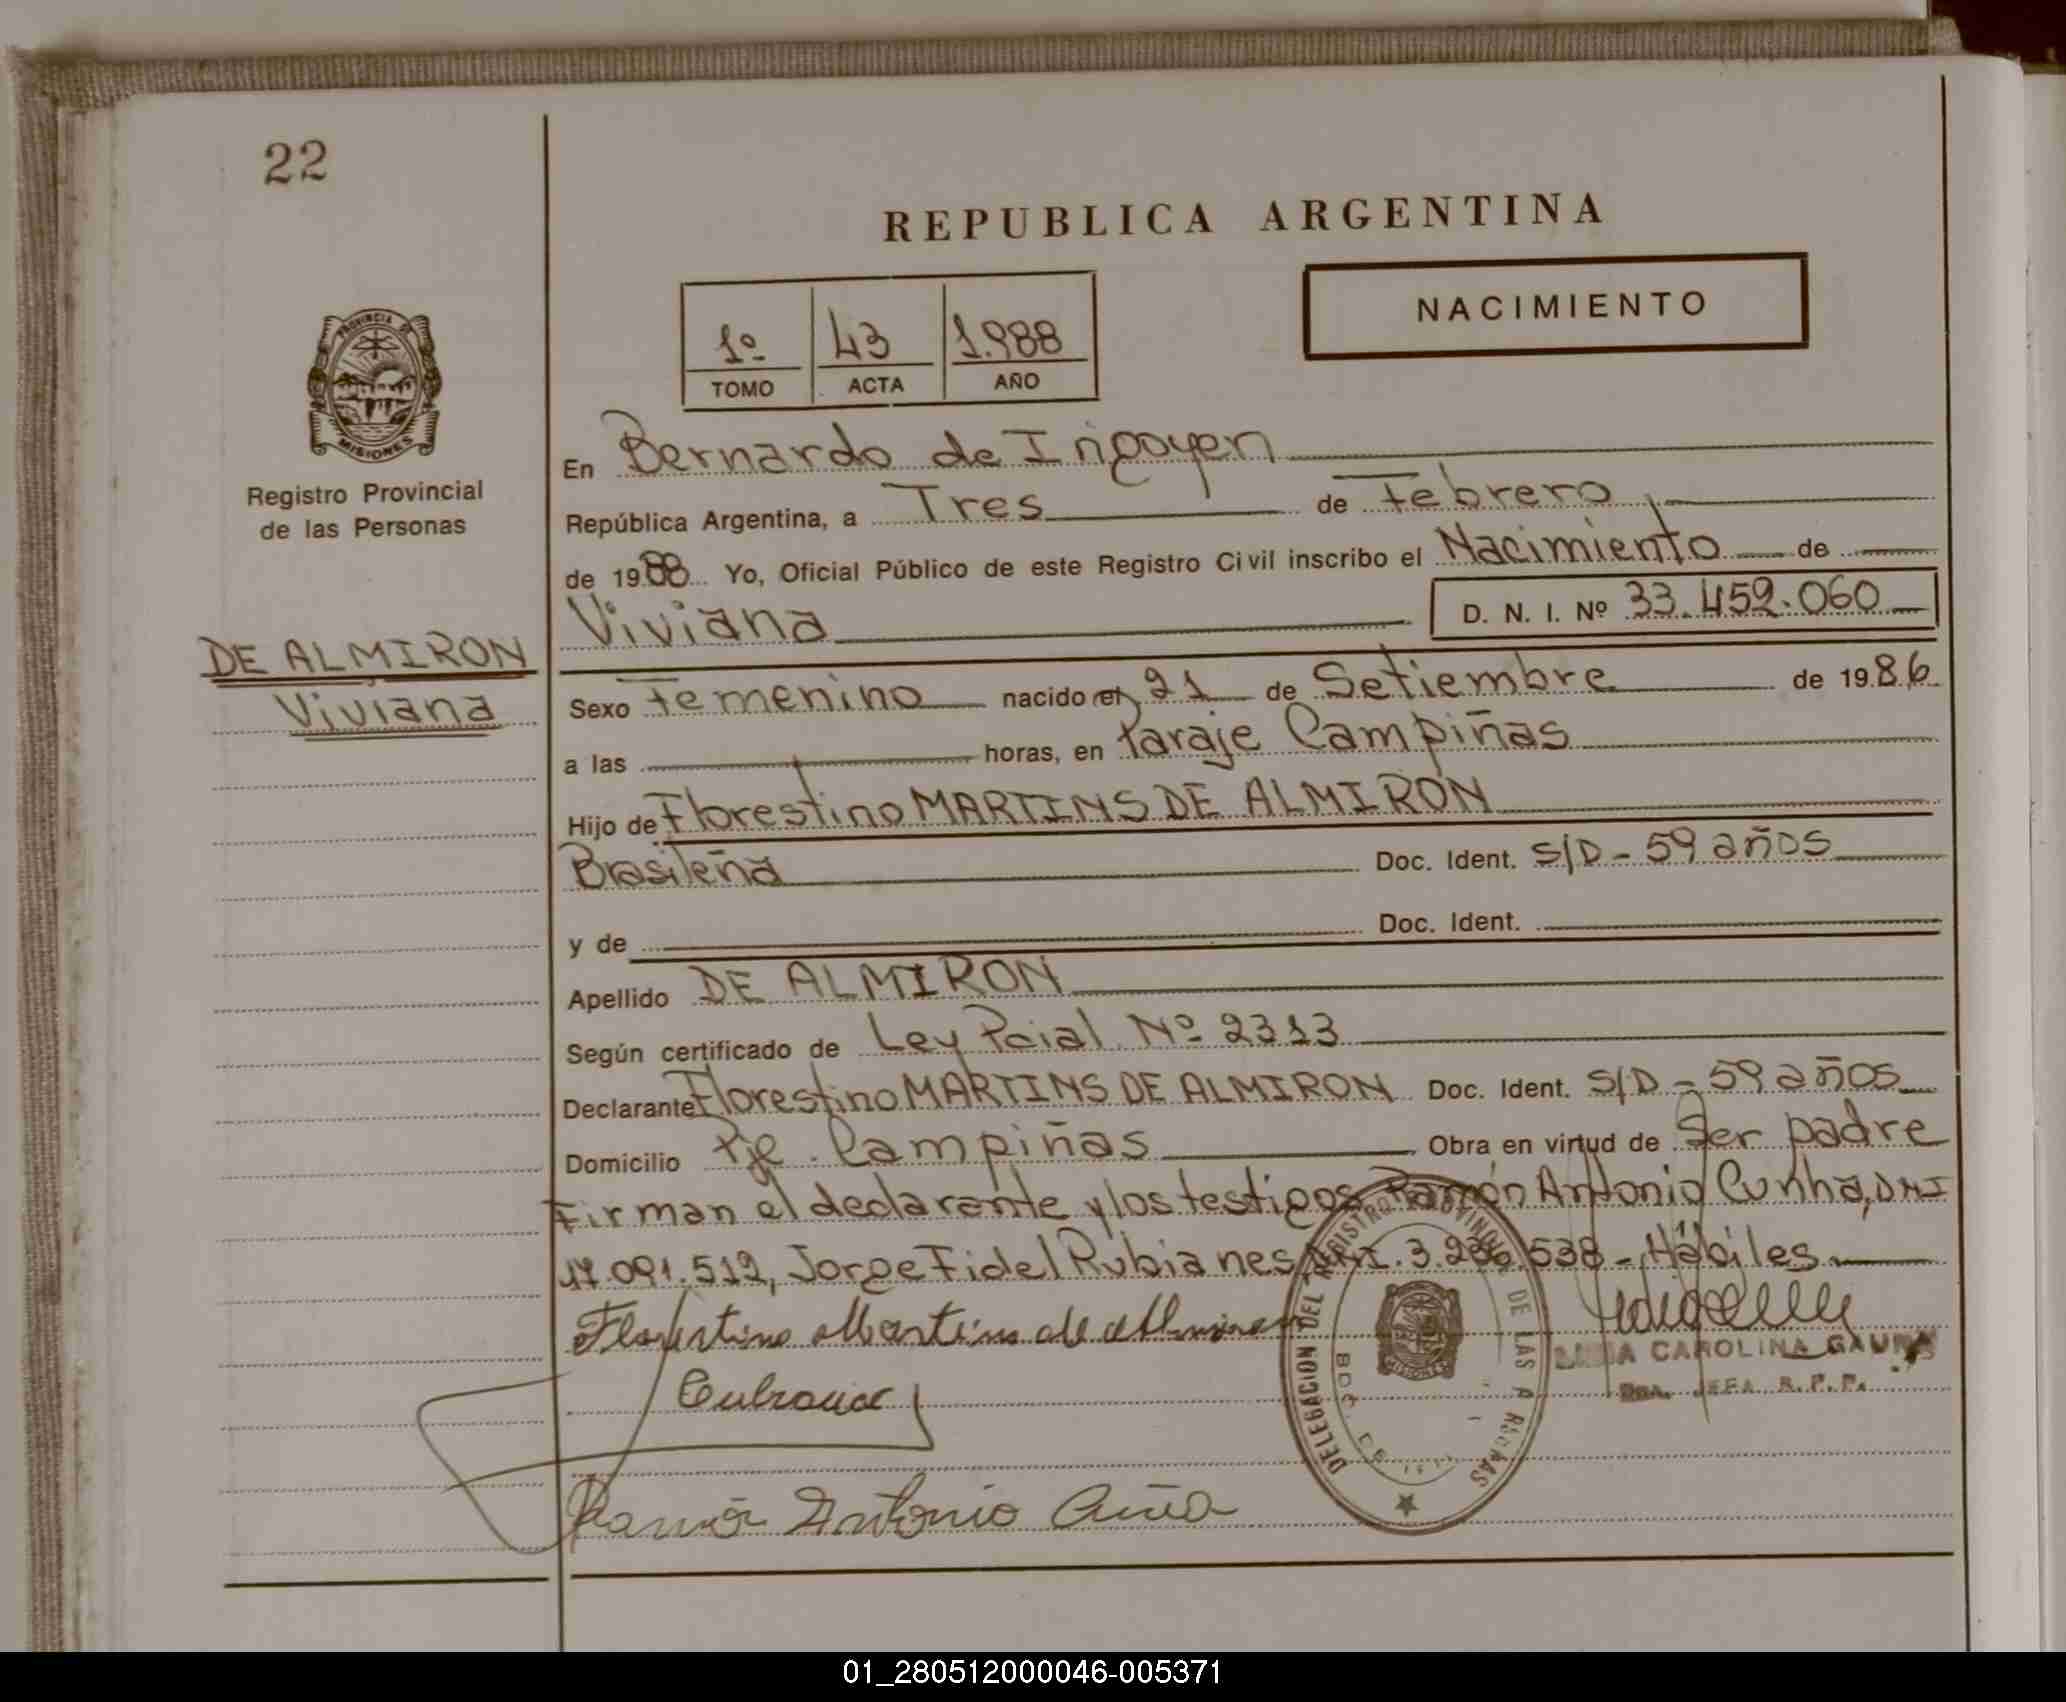 22
REPUBLICA ARGENTINA
NACIMIENTO
1º 43 1.988
TOMO ACTA AÑO
PROVINCIA DE
MISIONES
Registro Provincial
de las Personas
DE ALMIRON
Viviana
En Bernardo de Irigoyen
República Argentina, a Tres de Febrero
de 1988 Yo, Oficial Público de este Registro Civil inscribo el Nacimiento de
Viviana D. N. I. Nº 33.459.060
Sexo Femenino nacido el 21 de Setiembre de 1986
a las horas, en Paraje Campiñas
Hijo de Florestino MARTINS DE ALMIRON
Brasileña Doc. Ident. S/D - 59 años
y de Doc. Ident.
Apellido DE ALMIRON
Según certificado de Ley Pcial. Nº 2313
Declarante Florestino MARTINS DE ALMIRON Doc. Ident. S/D - 59 años
Domicilio Pje. Campiñas Obra en virtud de Ser padre
Firman el declarante y los testigos Ramón Antonio Cunha, DNI
17.091.512, Jorge Fidel Rubianes, DNI. 3.236.538 - Hábiles
Florestino Martins de Almiron
CAROLINA GAUNA
JEFA R.P.P.
Ramón Antonio
DELEGACION DEL REGISTRO PROVINCIAL DE LAS PERSONAS
MISIONES
01_280512000046-005371